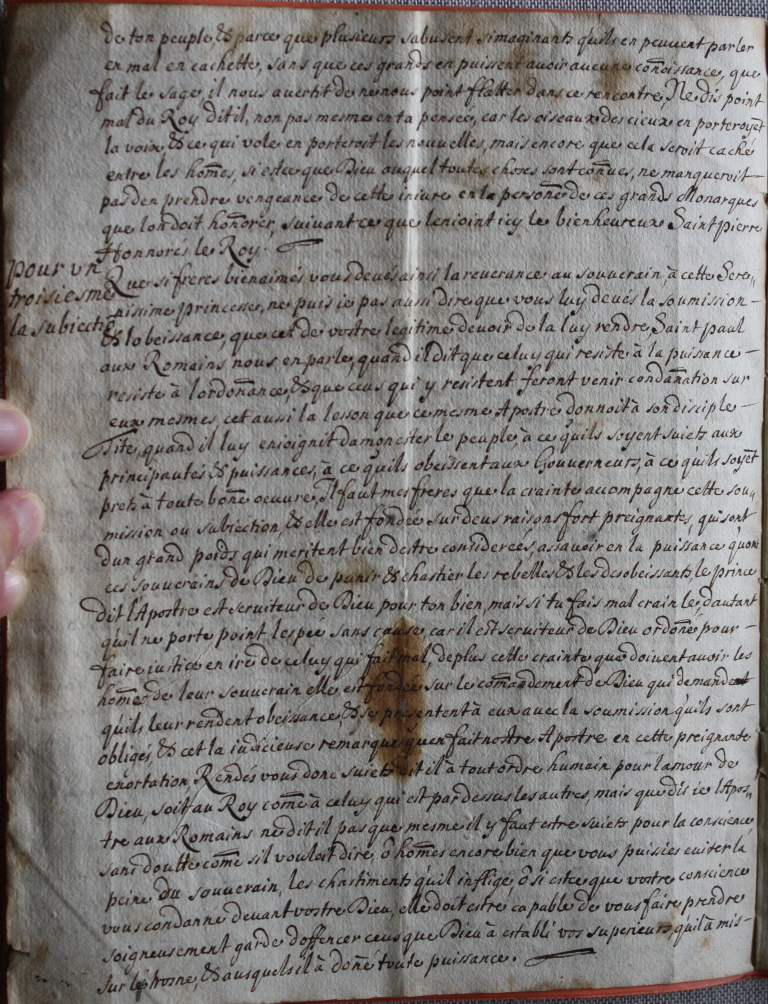 de ton peuple, & parce que plusieurs sabusent simaginants quils en peuvent parler
en mal en cachette, sans que ces grands en puissent avoir aucune cõnoissance, que
fait le sage, il nous avertit de ne nous point flatter dans ce rencontre, Ne dis point
mal du Roy dit il, non pas mesme en ta pensée, car les oiseaux des cieux en porteroyẽt
la voix, & ce qui vole en porteroit les nouvelles, mais encore que cela seroit caché
entre les hom̃es, si est ce que Dieu auquel toutes choses sont con̄ues, ne manqueroit
pas den prendre vengeance de cette iniure en la person̄e de ces grands Monarques
que lon doit hon̄orer, suivant ce que lenioint icy le bienheureux Saint pierre
Honnorés le Roy.
pour vn
troisiesme
la subiectiõ
Que si freres bienaimés vous devés ainsi la reverance au souverain, à cette Sere,,
nissime princesse, ne puis ie pas aussi dire que vous luy devés la soumission
& lobeissance, que cet de vostre legitime devoir de la luy rendre, Saint paul
aux Romains nous en parle, quand il dit que celuy qui resiste à la puissance
resiste à lordon̄ance, & que ceus qui y resistent feront venir condan̄ation sur
eux mesmes, cet aussi la lesson que ce mesme Apostre donnoit à son disciple
Tite, quand il luy enioignit damonester le peuple, à ce quils soyent suiets aux
principautés & puissances, à ce quils obeissent aux Gouverneurs, à ce quils soyẽt
prets à toute bon̄e oeuvre, Il faut mes freres que la crainte accompagne cette sou,,
mission ou subiection, & elle est fondée sur deus raisons fort preignantes, qui sont
dun grand poids qui meritent bien destre considerées, assavoir en la puissance quont
ces souverains de Dieu de punir & chastier les rebelles & les desobeissants, le prince
dit lApostre est serviteur de Dieu pour ton bien, mais si tu fais mal crain le, dautant
quil ne porte point lespée sans cause, car il est serviteur de Dieu ordon̄é pour
faire iustice en ire de celuy qui fait mal, de plus cette crainte que doivent avoir les
hom̃es de leur souverain elle est fondée sur le com̃andement de Dieu qui demande
quils leur rendent obeissance, & se presentent à eux avec la soumission quils sont
obligés, & cet la iudicieuse remarque quen fait nostre Apostre en cette preignante
exortation, Rendés vous donc suiets dit il à tout ordre humain pour lamour de
Dieu, soit au Roy com̃e à celuy qui est par dessus les autres, mais que dis ie lApos,,
tre aux Romains ne dit il pas que mesme il y faut estre suiets pour la conscience
sans doutte com̃e sil vouloit dire, ô hom̃es encore bien que vous puisiés eviter la
peine du souverain, les chastiments quil inflige, si est ce que vostre conscience
vous condanne devant vostre Dieu, elle doit estre capable de vous faire prendre
soigneusement garde doffencer ceus que Dieu à establi vos superieurs, quil à mis
sur le trosne, & ausquels il à don̄é toute puissance.